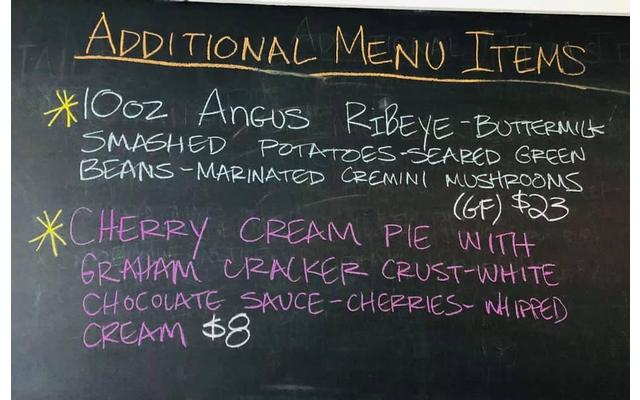 ADDITIONAL MENU ITEMS
*10oz ANGUS RIBEYE-BUTTERMILK
SMASHED POTATOES-SEARED GREEN
BEANS-MARINATED CREMINI MUSHROOMS
(GF) $23
*CHERRY CREAM PIE WITH
GRAHAM CRACKER CRUST-WHITE
CHOCOLATE SAUCE-CHERRIES-WHIPPED
CREAM $8